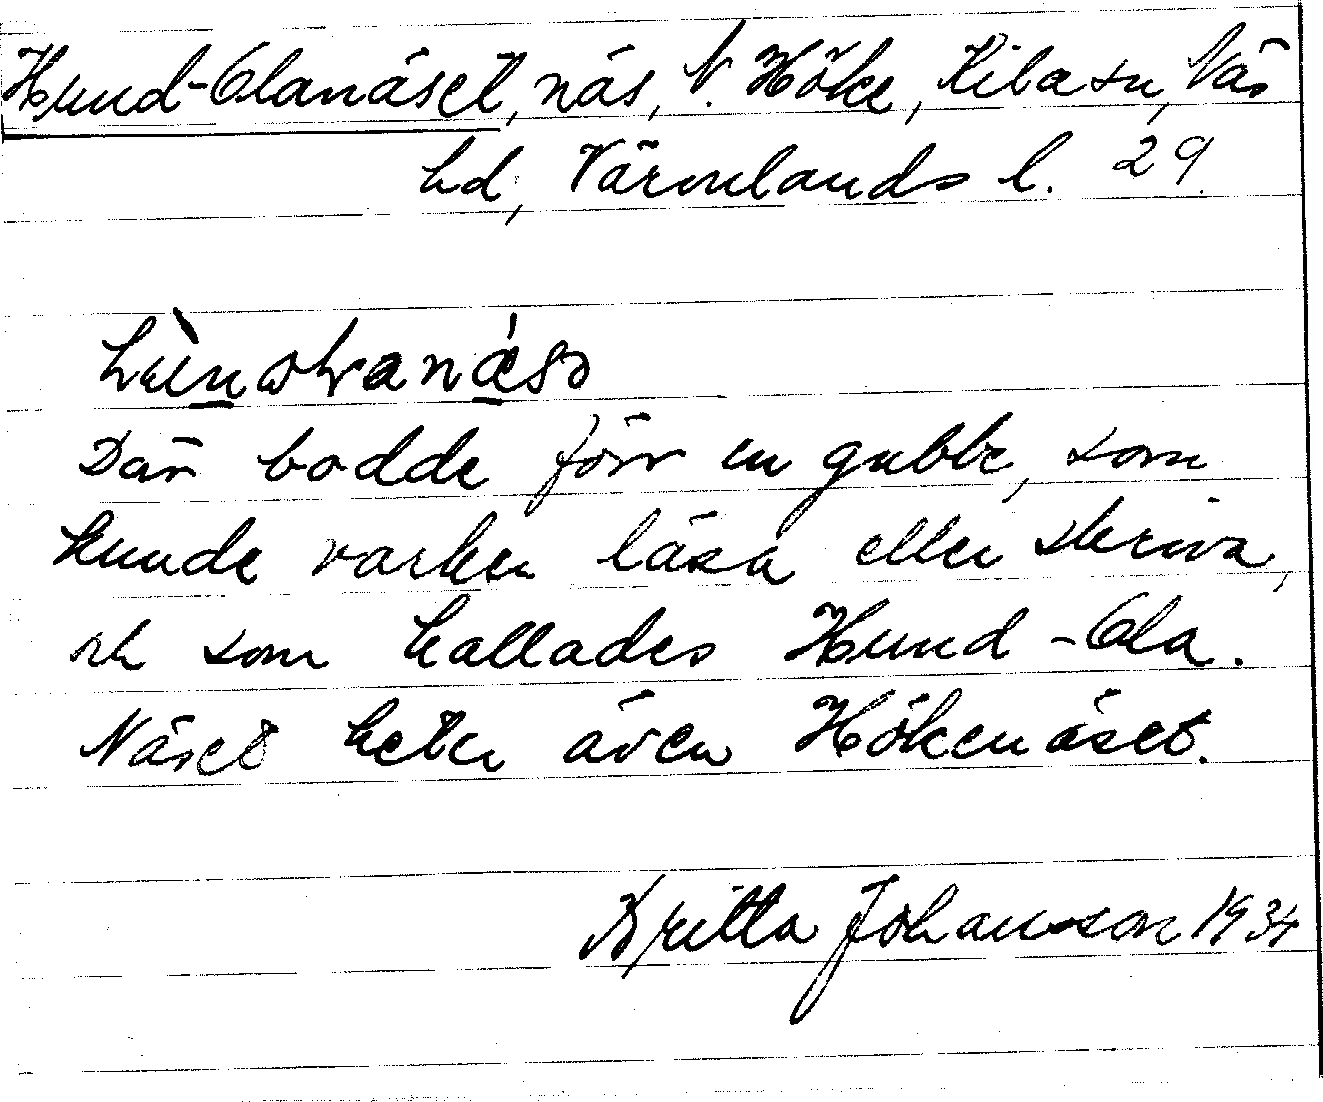 Hund-Olanäset, näs, N. Höke, Kila sn, Näs
hd, Värmlands l. 29.
Där bodde förr en gubbe, som
kunde varken läsa eller skriva,
och som kallades Hund-Ola.
Näset heter även Hökenäset.
Britta Johansson 1934